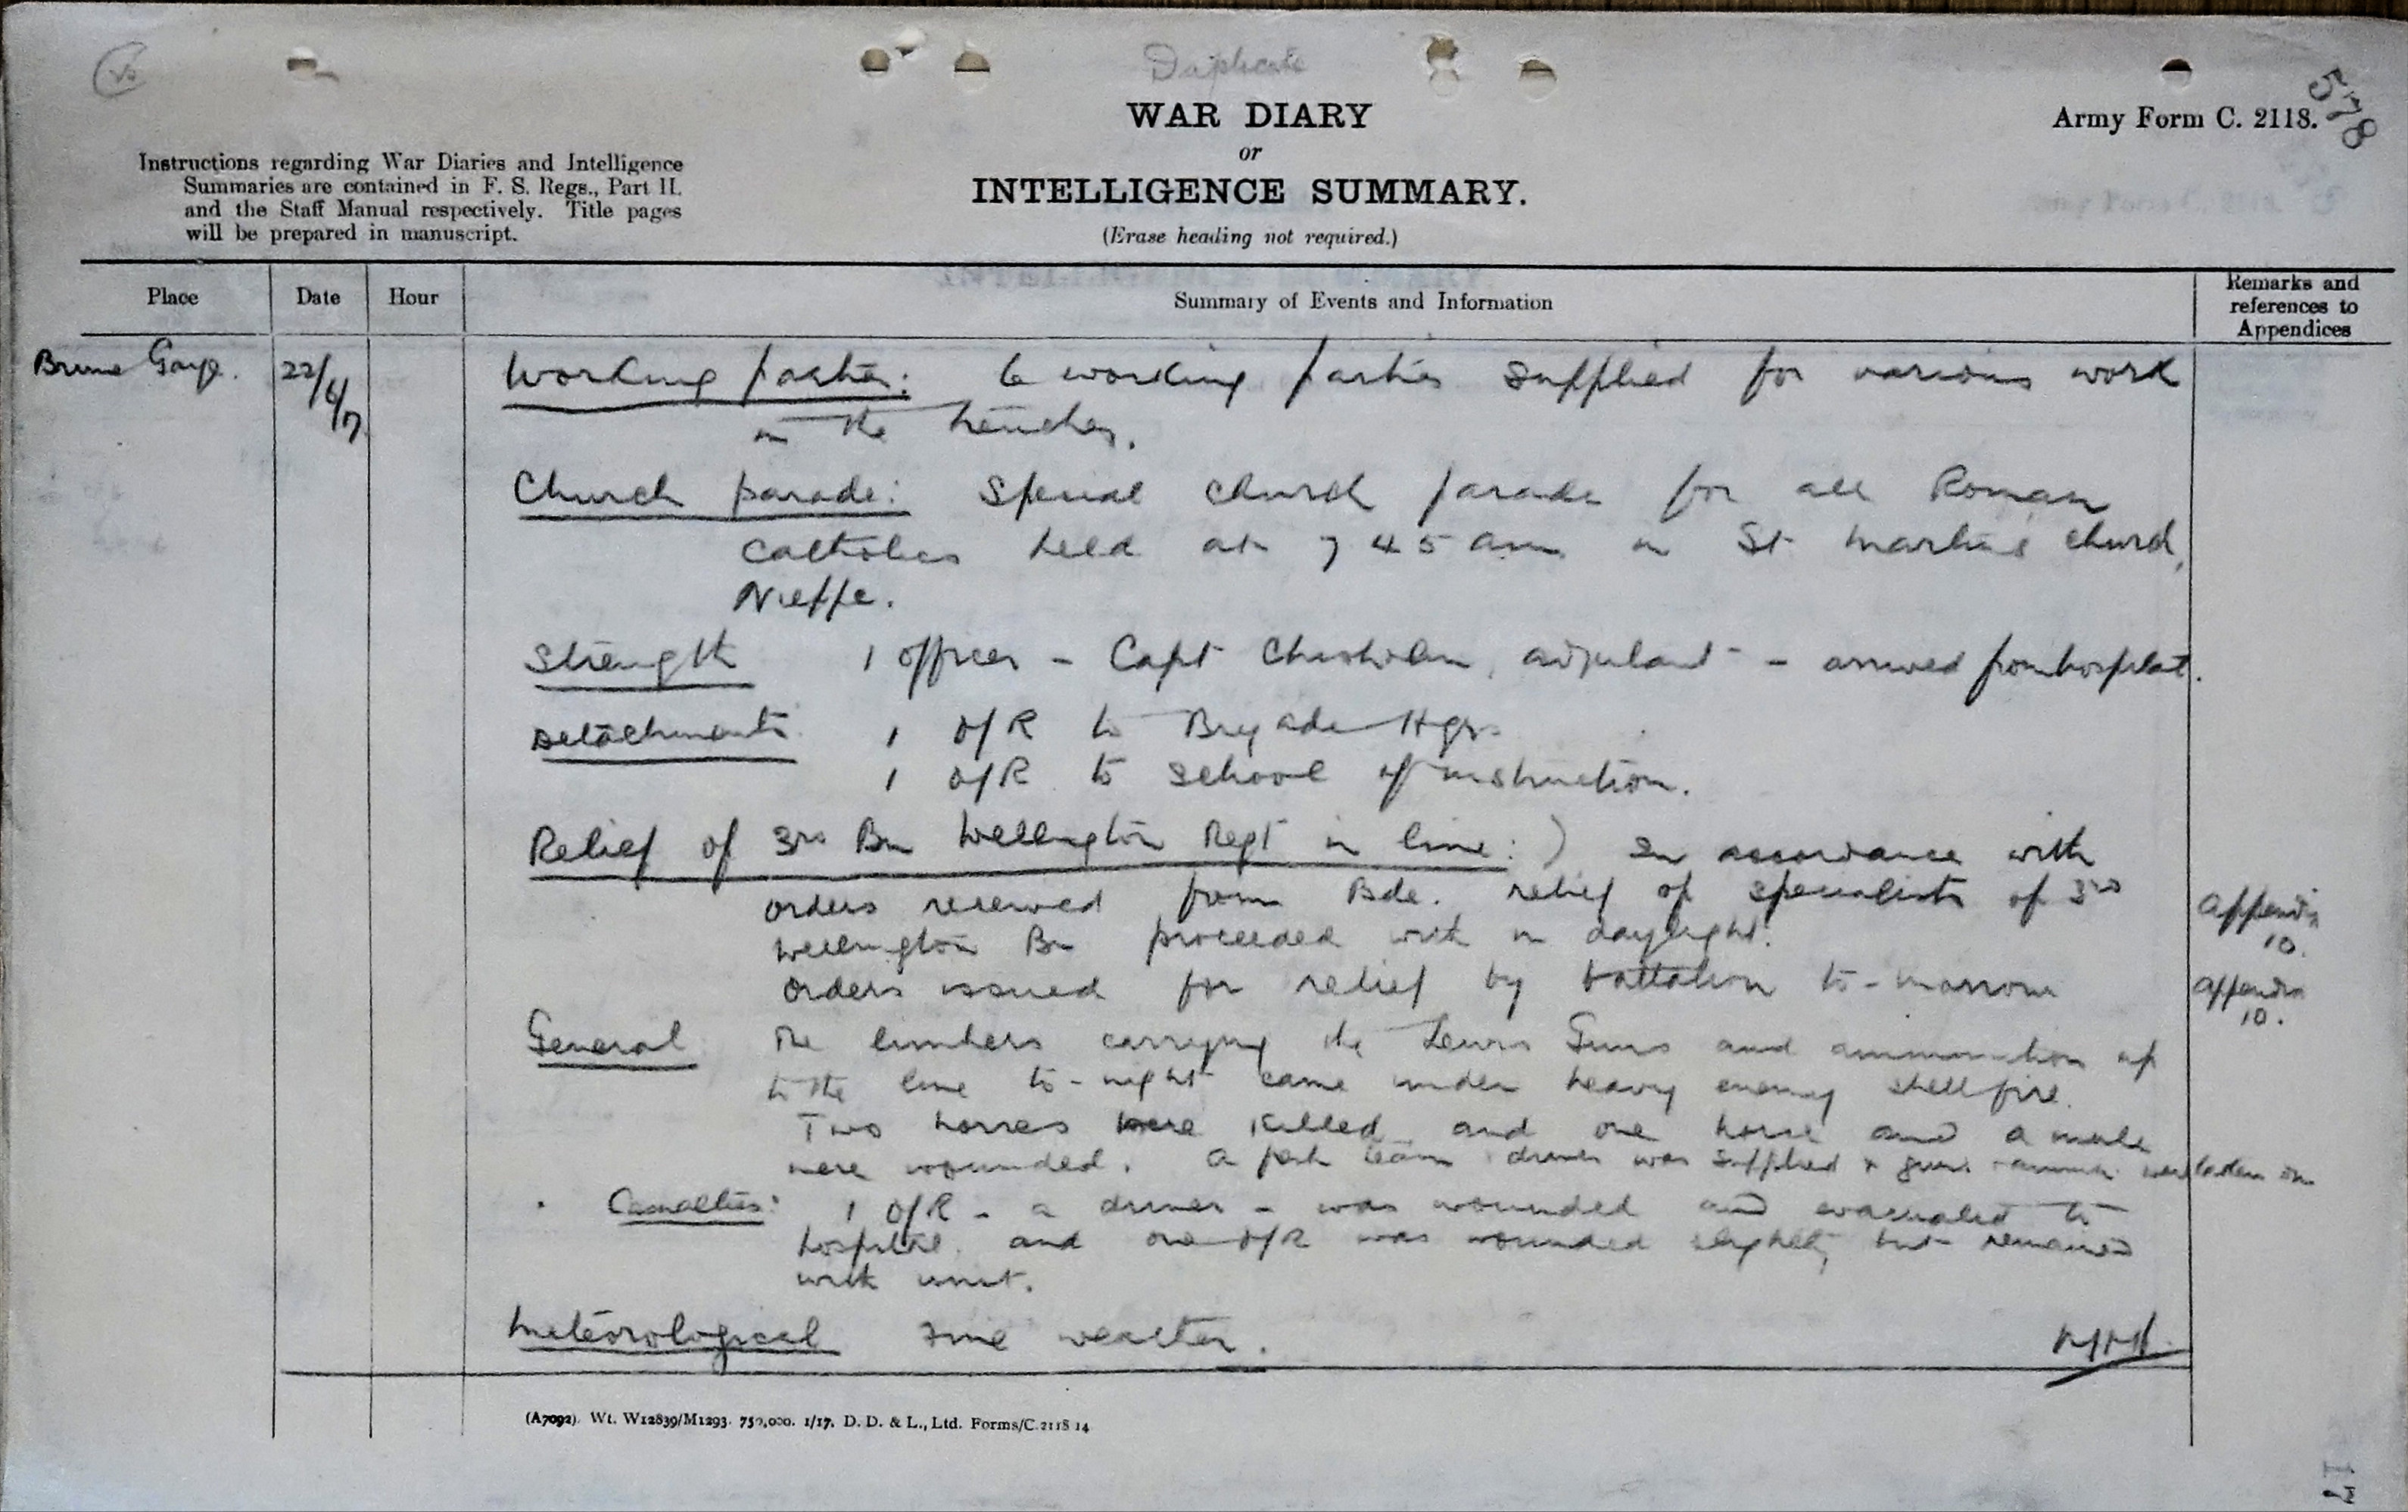 Duplicate
578
WAR DIARY
or
INTELLIGENCE SUMMARY.
(Erase heading not required.)
Army Form C. 2118.
Instructions regarding War Diaries and Intelligence
Summaries are contained in F. S. Regs., Part II.
and the Staff Manual respectively. Title pages
will be prepared in manuscript.
Place Date Hour Summary of Events and Information Remarks and
references to
Appendices
Brune Gaye. 22/6/17. Working parties: 6 working parties supplied for various work
in the trenches.
Church parade: Special church parade for all Roman
Catholics held at 7 45 am in St Martin's church,
Nieppe.
Strength 1 officer - Capt Chisholm, adjutant - arrived from hospital.
Detachments 1 O/R to Brigade Hqrs.
1 O/R to school of instruction.
Relief of 3rd Bn Wellington Regt in line:) In accordance with
orders received from Bde. relief of specialists of 3rd Appendix
Wellington Bn proceeded with in daylight. 10.
Orders issued for relief by battalion to-morrow Appendix
10.
General The limbers carrying the Lewis Guns and ammunition up
to the line to-night came under heavy enemy shell fire.
Two horses were killed and one horse and a mule
were wounded. A team driver was supplied & guns were laden on
Casualties: 1 O/R - a driver - was wounded and evacuated to
hospital and one O/R was wounded slightly but remained
with unit.
Meteorological Fine weather.
(A7092). Wt. W12839/M1293. 750,000. 1/17. D. D. & L., Ltd. Forms/C.2118 14